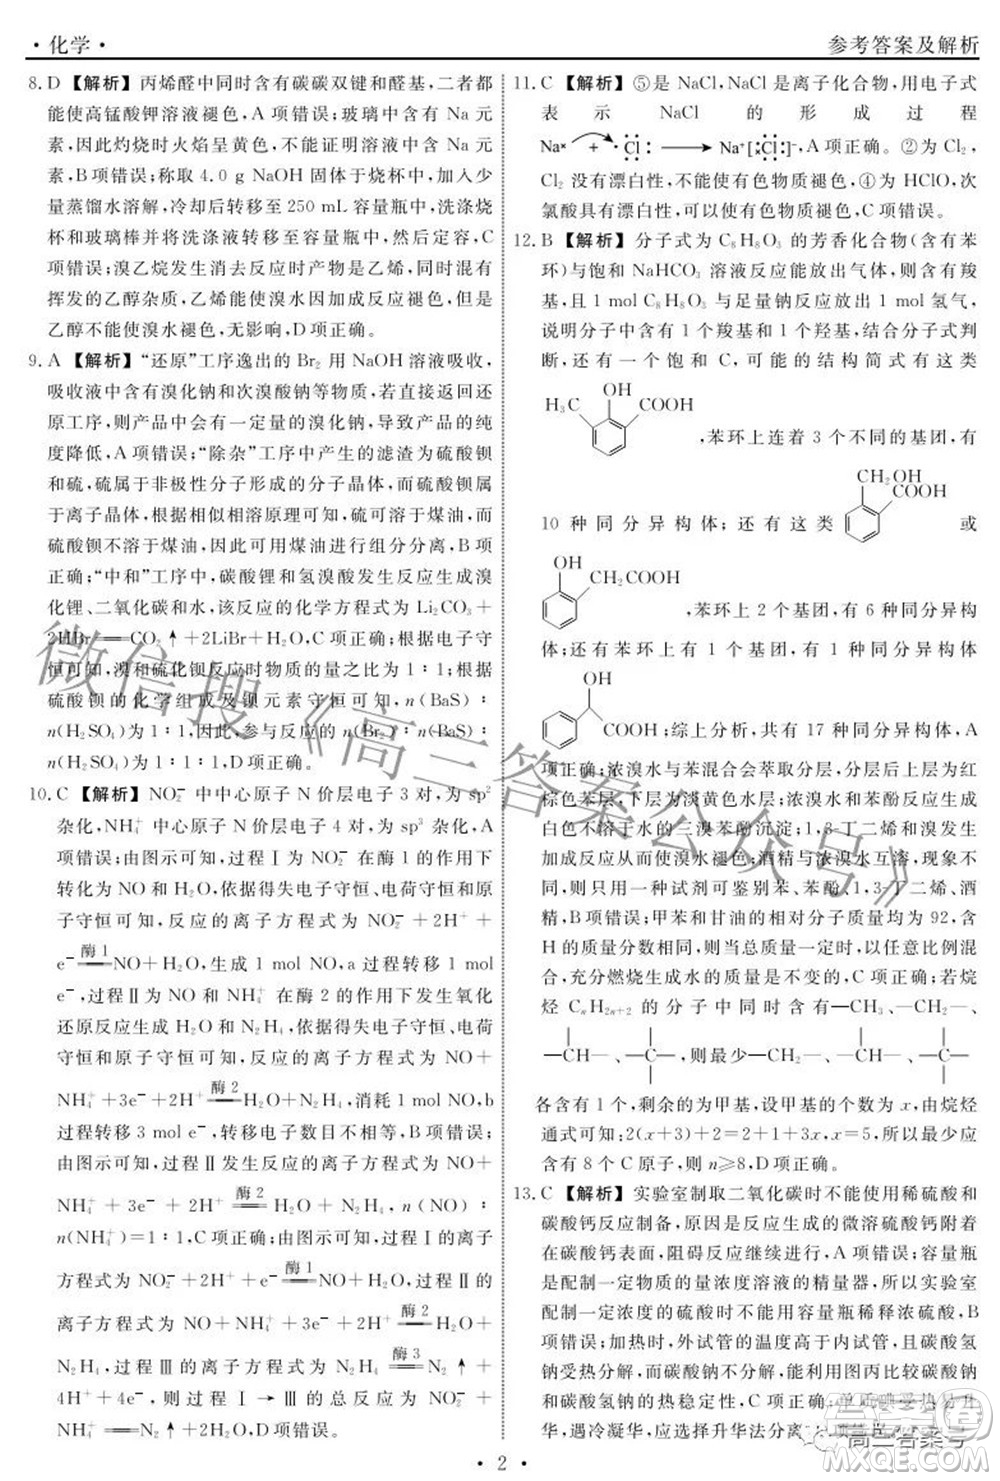 · 化学 ·
参考答案及解析
8. D 【解析】丙烯醛中同时含有碳碳双键和醛基,二者都
能使高锰酸钾溶液褪色,A 项错误;玻璃中含有 Na 元
素,因此灼烧时火焰呈黄色,不能证明溶液中含有 Na 元
素,B 项错误;称取 4.0 g NaOH 固体于烧杯中,加入少
量蒸馏水溶解,冷却后转移至 250 mL 容量瓶中,洗涤烧
杯和玻璃棒并将洗涤液转移至容量瓶中,再定容,C
项错误;溴乙烷发生消去反应生成了乙烯,乙烯中混有
挥发的乙醇杂质,乙烯可以与溴水加成使溴水褪色,但
乙醇不能使溴水褪色,无影响,D 项正确。
9. A 【解析】“还原”工序逸出的 Br₂ 用 NaOH 溶液吸收,
吸收液中含有溴化钠和次溴酸钠等物质,若直接返回还
原工序,则产品中会有一定量的溴化钠,导致产品的纯
度降低,A 项错误;“除杂”工序中产生的滤渣为硫酸钡
和硫,硫属于非极性分子形成的分子晶体,而硫酸钡属
于离子晶体,根据相似相溶原理可知,硫可溶于煤油,而
硫酸钡不溶于煤油,因此可用煤油进行组分分离,B 项
正确;“中和”工序中,碳酸锂和氢溴酸发生反应生成溴
化锂、二氧化碳和水,该反应的化学方程式为 Li₂CO₃ +
2HBr══CO₂↑+2LiBr+H₂O,C 项正确;根据电子守
恒可知,溴和硫化钡反应时物质的量之比为 1∶1;根据
硫酸钡的化学组成及钡元素守恒可知,n(BaS)∶
n(H₂SO₄)为 1∶1,因此参与反应的 n(Br₂)∶n(BaS)∶
n(H₂SO₄)为 1∶1∶1,D 项正确。
10. C 【解析】NO₂⁻ 中中心原子 N 价层电子 3 对,为 sp²
杂化,NH₄⁺ 中心原子 N 价层电子 4 对,为 sp³ 杂化,A
项错误;由图示可知,过程Ⅰ为 NO₂⁻ 在酶 1 的作用下
转化为 NO 和 H₂O,依据得失电子守恒、电荷守恒和原
子守恒可知,反应的离子方程式为 NO₂⁻ + 2H⁺ +
e⁻ ══酶 1══ NO+H₂O,生成 1 mol NO,a 过程转移 1 mol
e⁻,过程Ⅱ为 NO 和 NH₄⁺ 在酶 2 的作用下发生氧化
还原反应生成 H₂O 和 N₂H₄,依据得失电子守恒、电荷
守恒和原子守恒可知,反应的离子方程式为 NO+
NH₄⁺+3e⁻+2H⁺ ══酶 2══ H₂O+N₂H₄,消耗 1 mol NO,b
过程转移 3 mol e⁻,转移电子数目不相等,B 项错误;
由图示可知,过程Ⅱ发生反应的离子方程式为 NO+
NH₄⁺ + 3e⁻ + 2H⁺ ══酶 2══ H₂O + N₂H₄,n(NO)∶
n(NH₄⁺)=1∶1,C 项正确;由图示可知,过程Ⅰ的离子
方程式为 NO₂⁻ + 2H⁺ + e⁻ ══酶 1══ NO + H₂O,过程Ⅱ的
离子方程式为 NO + NH₄⁺ + 3e⁻ + 2H⁺ ══酶 2══ H₂O +
N₂H₄,过程Ⅲ的离子方程式为 N₂H₄ ══酶 3══ N₂↑ +
4H⁺ + 4e⁻,则过程Ⅰ→Ⅲ的总反应为 NO₂⁻ +
NH₄⁺══N₂↑+2H₂O,D 项错误。
11. C 【解析】⑤是 NaCl,NaCl 是离子化合物,用电子式
表示 NaCl 的形成过程
Na× + ·Cl: ⟶ Na⁺[×Cl:]⁻,A 项正确。②为 Cl₂,
Cl₂ 没有漂白性,不能使有色物质褪色,④为 HClO,次
氯酸具有漂白性,可以使有色物质褪色,C 项错误。
12. B 【解析】分子式为 C₈H₈O₃ 的芳香化合物(含有苯
环)与饱和 NaHCO₃ 溶液反应能放出气体,则含有羧
基,且 1 mol C₈H₈O₃ 与足量钠反应生成 1 mol 氢气,
说明分子中含有 1 个羧基和 1 个羟基,结合分子式判
断,还有一个饱和 C,可能的结构简式有这类
OH
H₃C COOH
,苯环上连着 3 个不同的基团,有
CH₂OH
COOH
10 种同分异构体;还有这类 或
OH
CH₂COOH
,苯环上 2 个基团,有 6 种同分异构
体;还有一种侧链上含有羧基和羟基,有 1 种同分异构体
OH
COOH;综上分析,共有 17 种同分异构体,A
项正确;浓溴水与苯混合会萃取分层,分层后上层为红
棕色苯层,下层为淡黄色水层;浓溴水和苯酚反应生成
白色不溶于水的三溴苯酚沉淀;1,3-丁二烯和溴发生
加成反应从而使溴水褪色;酒精与浓溴水互溶,现象不
同,所以用一种试剂可鉴别苯、苯酚、1,3-丁二烯、酒
精,B 项错误;甲苯和甘油的相对分子质量均为 92,含
H 的质量分数相同,则当总质量一定时,以任意比混
合,充分燃烧生成水的质量是不变的,C 项正确;若烷
烃 CₙH₂ₙ₊₂ 的分子中同时含有—CH₃、—CH₂—、
—CH—、—C—,则最少—CH₂—、—CH—、—C—
各含有 1 个,剩余的为甲基,设甲基的个数为 x,由烷烃
通式可知:2(x+3)+2=2+1+3x,x=5,则最少应
含有 8 个 C 原子,则 n≥8,D 项正确。
13. C 【解析】实验室制取二氧化碳时不能使用稀硫酸和
碳酸钙反应制备,原因是反应生成的微溶硫酸钙附着
在碳酸钙表面,阻碍反应继续进行,A 项错误;容量瓶
是配制一定物质的量浓度溶液的精量器,所以实验室
配制一定浓度的硫酸时不能用容量瓶稀释浓硫酸,B
项错误;加热时,外试管的温度高于内试管,碳酸氢
钠受热分解,而碳酸钠不分解,可用该图比较碳酸钠
和碳酸氢钠的热稳定性,C 项正确;单质碘受热易升
华、遇冷凝华,应选择升华法分离
· 2 ·
微信搜《高三答案公众号》
高三答案号